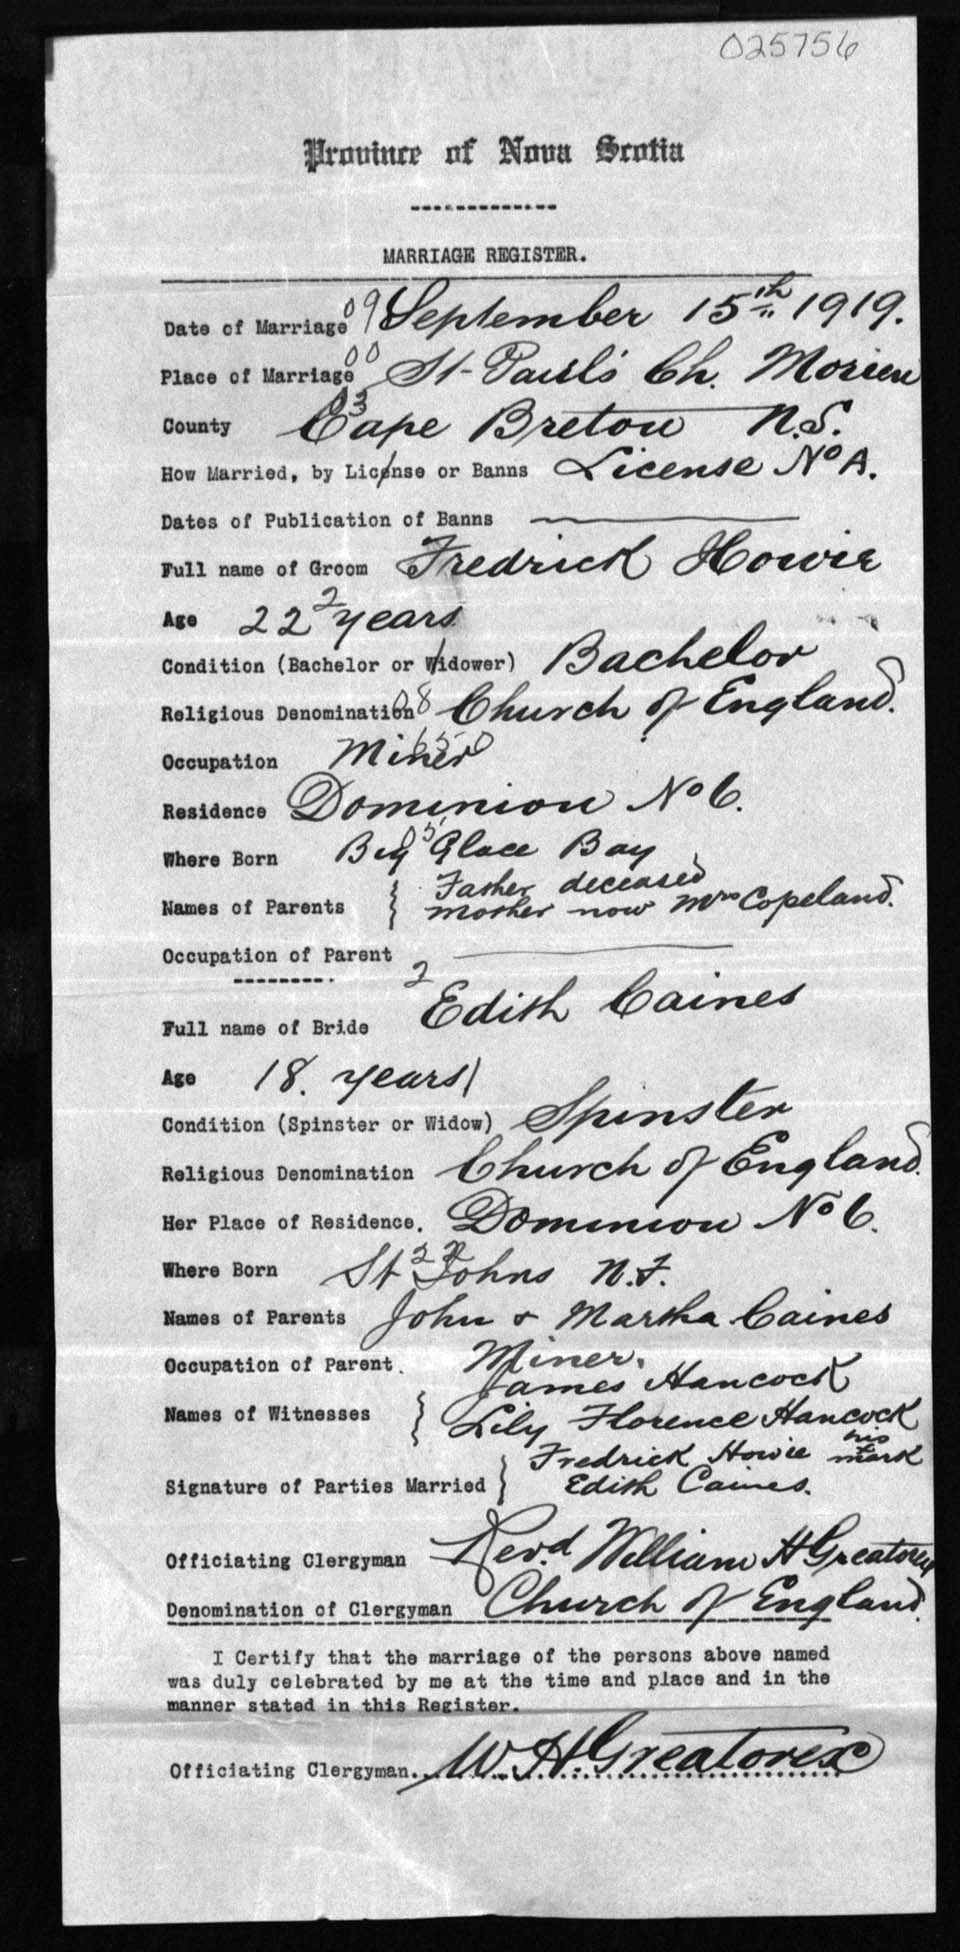 025756
Province of Nova Scotia
MARRIAGE REGISTER.
Date of Marriage 09 September 15th 1919.
Place of Marriage 00 St Paul's Ch. Morien
County 03 Cape Breton N.S.
How Married, by License or Banns License No A.
Dates of Publication of Banns
Full name of Groom Fredrick Howie
Age 22 2 years
Condition (Bachelor or Widower) Bachelor
Religious Denomination 08 Church of England.
Occupation Miner
Residence Dominion No 6.
Where Born Big 05 Glace Bay
Father deceased
Names of Parents { mother now Mrs Copeland.
Occupation of Parent
Full name of Bride 2 Edith Caines
Age 18. years 1
Condition (Spinster or Widow) Spinster
Religious Denomination Church of England.
Her Place of Residence. Dominion No 6.
Where Born St 22 Johns N.F.
Names of Parents John & Martha Caines
Occupation of Parent. Miner.
James Hancock
Names of Witnesses } Lily Florence Hancock
Fredrick Howie his x mark
Signature of Parties Married } Edith Caines.
Officiating Clergyman Revd. William H Greatorex
Denomination of Clergyman Church of England.
I Certify that the marriage of the persons above named
was duly celebrated by me at the time and place and in the
manner stated in this Register.
Officiating Clergyman... W. H. Greatorex